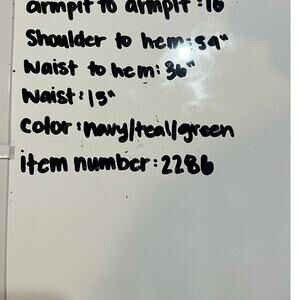 armpit to armpit : 16
Shoulder to hem: 59"
Waist to hem: 36"
Waist: 15"
color: navy/teal/green
item number: 2286